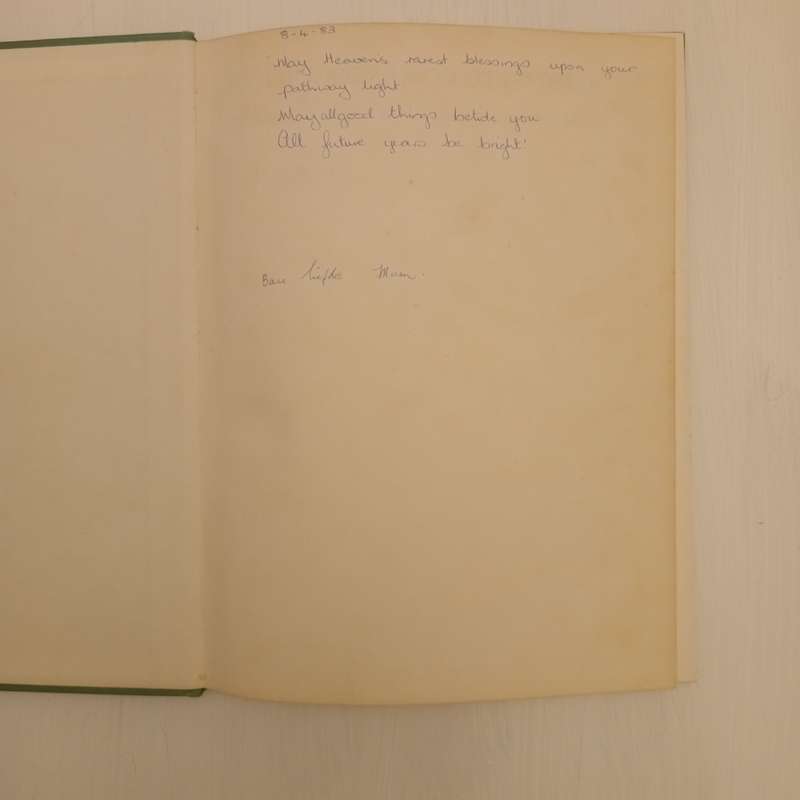 8-4-83
'May Heaven's rarest blessings upon your
pathway light
May all good things betide you
All future years be bright'
Baie liefde Mam.